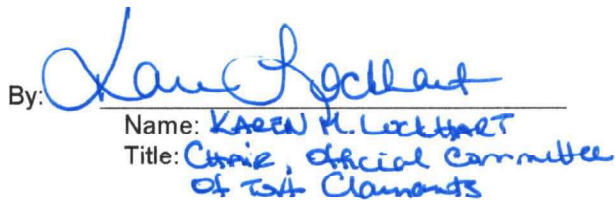 By: Karen Lockhart
Name: KAREN M. LOCKHART
Title: Chair, Official Committee
Of Tort Claimants